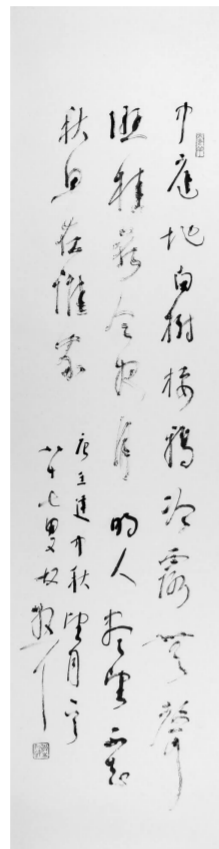 中庭地白樹棲鴉冷露無聲
濕桂花今夜月明人盡望不知
秋思在誰家
唐王建中秋望月
八十七叟林散耳